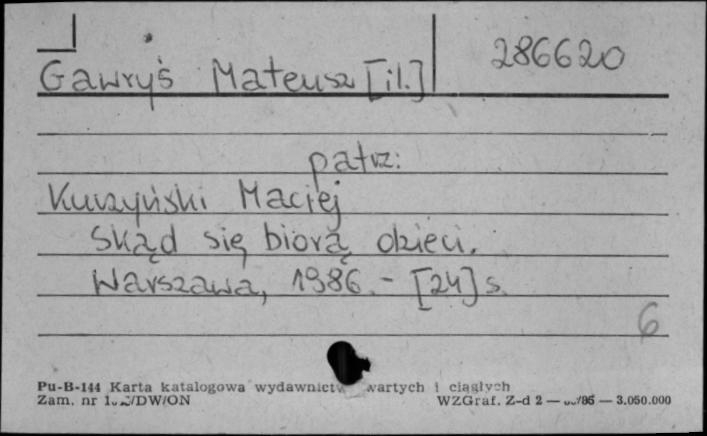 286620
Gawryś Mateusz [il.]
patrz:
Kuczyński Maciej
Skąd się biorą dzieci.
Warszawa, 1986. - [24] s.
6
Pu-B-144 Karta katalogowa wydawnictw zwartych i ciągłych
Zam. nr /DW/ON WZGraf. Z-d 2 — /85 — 3.050.000